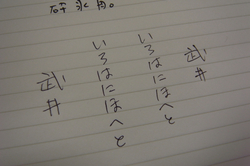 武井
いろはにほへと
いろはにほへと
武井